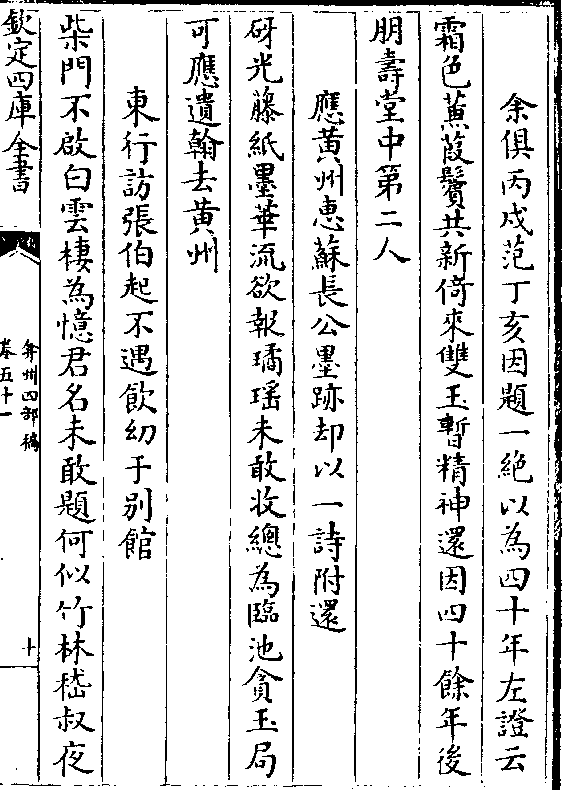 余俱丙戍范丁亥因題一絶以為四十年左證云
霜色蒹葭鬢共新倚來雙玉暫精神還因四十餘年後
朋壽堂中第二人
應黄州惠蘇長公墨跡却以一詩附還
砑光藤紙墨華流欲報璚瑶未敢收總為臨池貪玉局
可應遺翰去黄州
東行訪張伯起不遇飲幼于别館
柴門不啟白雲棲為憶君名未敢題何似竹林嵇叔夜
欽定四庫全書
弇州四部稿
卷五十一
十